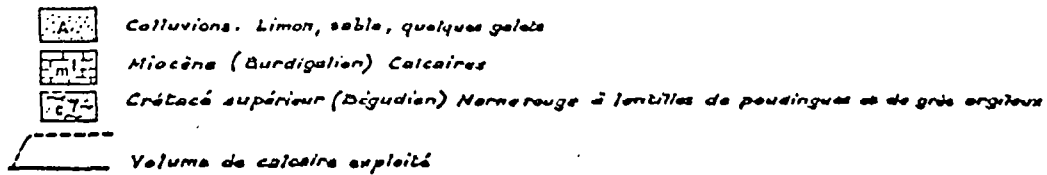 A Colluvions. Limon, sable, quelques galets
m1 Miocène (Burdigalien) Calcaires
c7 Crétacé supérieur (Bégudien) Marne rouge à lentilles de poudingues et de grès argileux
Volume de calcaire exploité